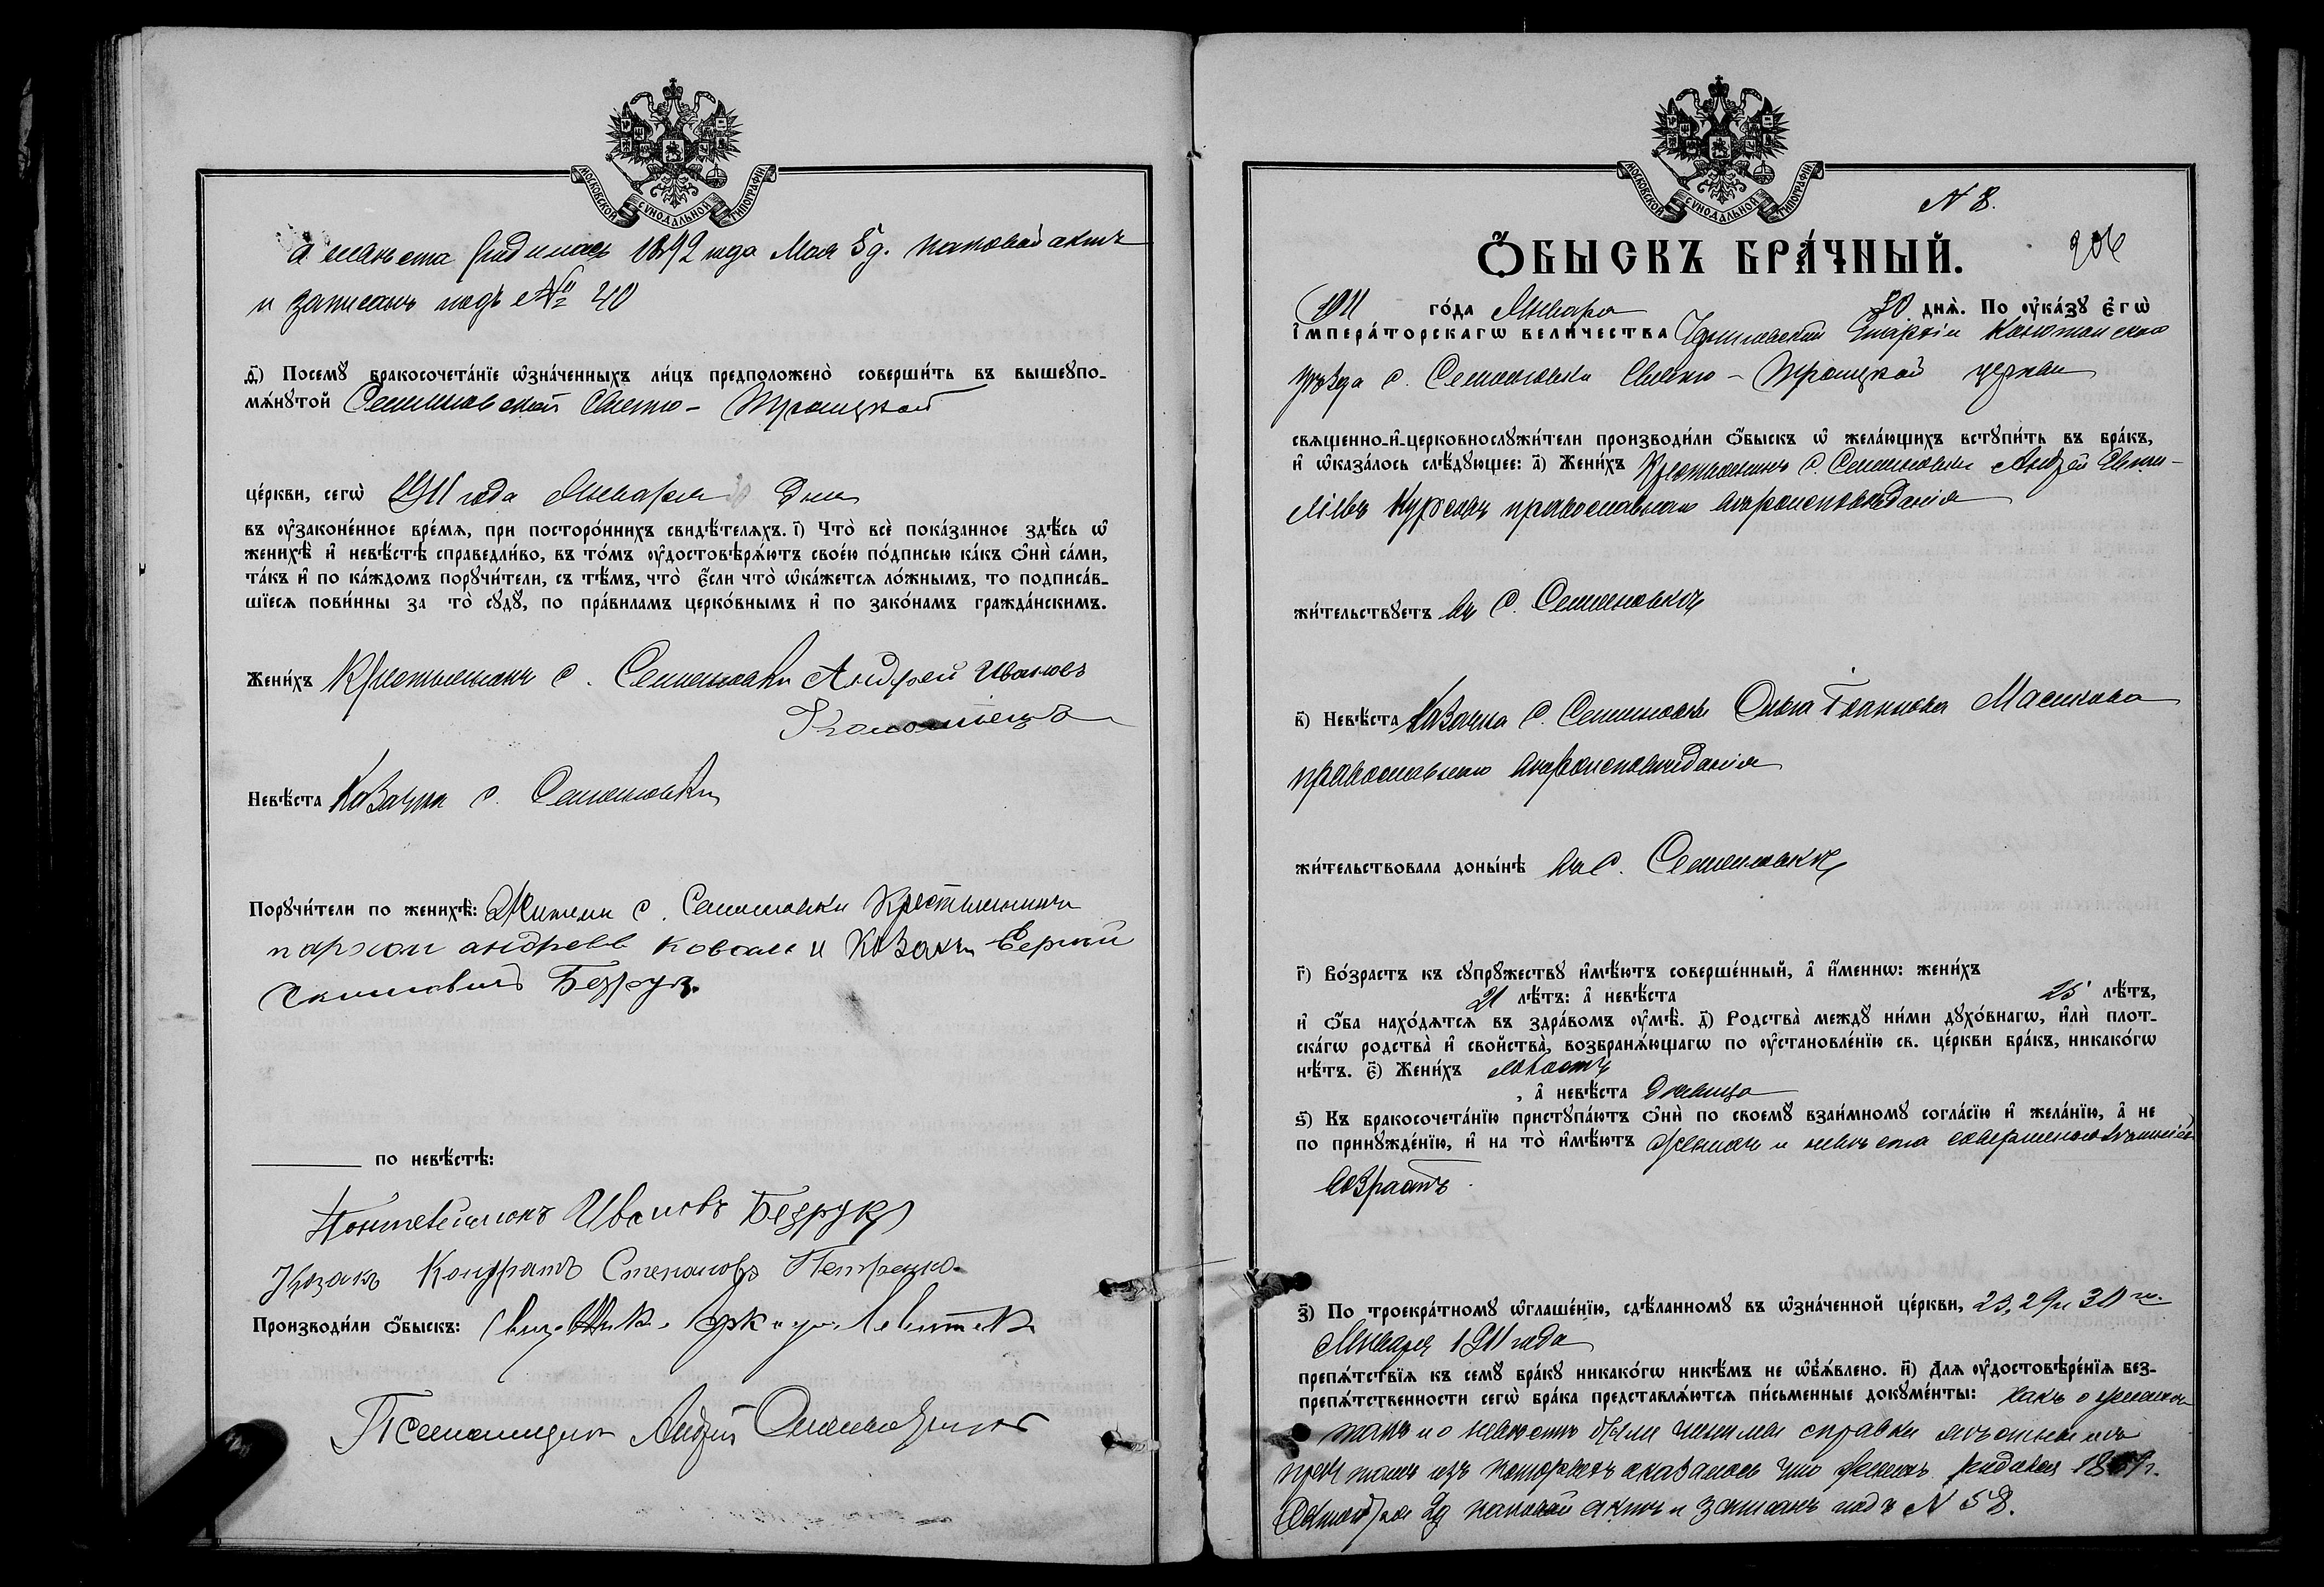 МОСКОВСКОЙ СУНОДАЛЬНОЙ ТИПОГРАФІИ
а невѣста родилась 1892 года Мая 5 д. каковой актъ
и записанъ подъ № 40
д҃) Посемꙋ̀ бракосочета́нїе ѡ҆зна́ченныхъ ли́цъ предположено̀ соверши́ть въ вышеꙋпо-
мѧ́нꙋтой Семеновской Свято-Троицкой
це́ркви, сегѡ̀ 1911 года Января 30 дня
въ ᲂу҆законе́нное вре́мѧ, при посторо́ннихъ свидѣ́телѧхъ. і҃) Что̀ всѐ пока́занное здѣ́сь ѡ҆
женихѣ̀ и҆ невѣ́стѣ справедли́во, въ то́мъ ᲂу҆достовѣрѧ́ютъ свое́ю по́дписью ка́къ ѻ҆нѝ са́ми,
та́къ и҆ по ка́ждомъ порꙋчи́тели, съ тѣ́мъ, что̀ є҆́сли что̀ ѡ҆ка́жетсѧ ло́жнымъ, то подписа́в-
шїесѧ пови́нны за то̀ сꙋдꙋ̀, по пра́виламъ церко́внымъ и҆ по зако́намъ гражда́нскимъ.
Жени́хъ Крестьянинъ с. Семеновки Андрей Ивановъ
Невѣ́ста Козачка с. Семеновки
Порꙋчи́тели по женихѣ̀: Жители с. Семеновки Крестьянинъ
андреев коваль и Козакъ Сергий
Безрук.
по невѣ́стѣ:
Ивановъ Безрукъ
Козакъ Кондратъ Степановъ Петренко
Производи́ли ѻ҆́быскъ: Свящ.
Псаломщикъ Андрей
МОСКОВСКОЙ СУНОДАЛЬНОЙ ТИПОГРАФІИ
N 8.
206
Ѻ҆́БЫСКЪ БРА́ЧНЫЙ.
1911 го́да Января 30 днѧ̀. По ᲂу҆ка́зꙋ є҆гѡ̀
і҆мпера́торскагѡ вели́чества Черниговской Епархіи Конотопскаго
уѣзда с. Семеновки Свято-Троицкой церкви
свѧщенно-и҆-церковнослꙋжи́тели производи́ли ѻ҆́быскъ ѡ҆ жела́ющихъ встꙋпи́ть въ бра́къ,
и҆ ѡ҆каза́лось слѣ́дꙋющее: а҃) Жени́хъ Крестьянинъ с. Семеновки Андрей
православнаго вѣроисповѣданія
жи́тельствꙋетъ въ с. Семеновкѣ
в҃) Невѣ́ста Козачка с. Семеновки Ольга
православнаго вѣроисповѣданія
жи́тельствовала доны́нѣ въ с. Семеновкѣ
г҃) Во́зрастъ къ сꙋпрꙋ́жествꙋ и҆мѣ́ютъ соверше́нный, а҆ и҆́меннѡ: жени́хъ
21 лѣ́тъ: а҆ невѣ́ста 25 лѣ́тъ,
и҆ ѻ҆́ба нахо́дѧтсѧ въ здра́вомъ ᲂу҆мѣ̀. д҃) Родства̀ междꙋ ни́ми дꙋхо́внагѡ, и҆лѝ плот-
ска́гѡ родства̀ и҆ свойства̀, возбранѧ́ющагѡ по ᲂу҆становле́нїю св. це́ркви бра́къ, никако́гѡ
нѣ́тъ. є҃) Жени́хъ холостъ
, а҆ невѣ́ста дѣвица
ѕ҃) Къ бракосочета́нїю пристꙋпа́ютъ ѻ҆нѝ по своемꙋ̀ взаи́мномꙋ согла́сїю и҆ жела́нїю, а҆ не
по принꙋжде́нїю, и҆ на то̀ и҆мѣ́ютъ женихъ и невѣста совершеннолѣтній
возрастъ.
з҃) По троекра́тномꙋ ѡ҆глаше́нїю, сдѣ́ланномꙋ въ ѡ҆зна́ченной це́ркви, 23, 29 и 30 го
Января 1911 года
препѧ́тствїѧ къ семꙋ̀ бра́кꙋ никако́гѡ никѣ́мъ не ѡ҆б̾ѧ́влено. и҃) Длѧ ᲂу҆достовѣре́нїѧ без-
препѧ́тственности сегѡ̀ бра́ка представлѧ́ютсѧ пи́сьменные докꙋме́нты: какъ о женихѣ
такъ и о невѣстѣ были справки
изъ которыхъ оказалось что женихъ родился 1889 г.
Октября 29 каковой актъ и записанъ подъ N 58.